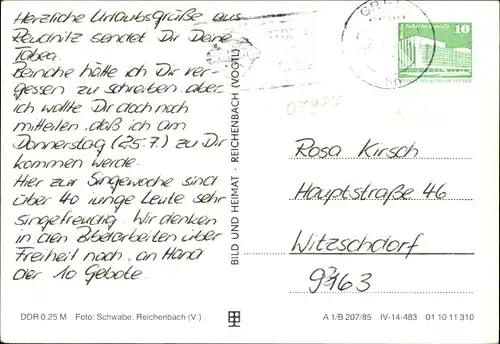 Herzliche Urlaubsgrüße aus
Reudnitz sendet Dir Deine
Tabea.
Beinahe hätte ich Dir ver-
gessen zu schreiben aber
ich wollte Dir doch noch
mitteilen, daß ich am
Donnerstag (25.7.) zu Dir
kommen werde.
Hier zur Singewoche sind
über 40 junge Leute sehr
singefreudig. Wir denken
in den Bibelarbeiten über
Freiheit nach, an Hand
der 10 Gebote.
BILD UND HEIMAT · REICHENBACH (VOGTL)
10
Rosa Kirsch
Hauptstraße 46
Witzschdorf
9363
DDR 0.25 M Foto: Schwabe, Reichenbach (V.)
A 1/B 207/85 IV-14-483 01 10 11 310